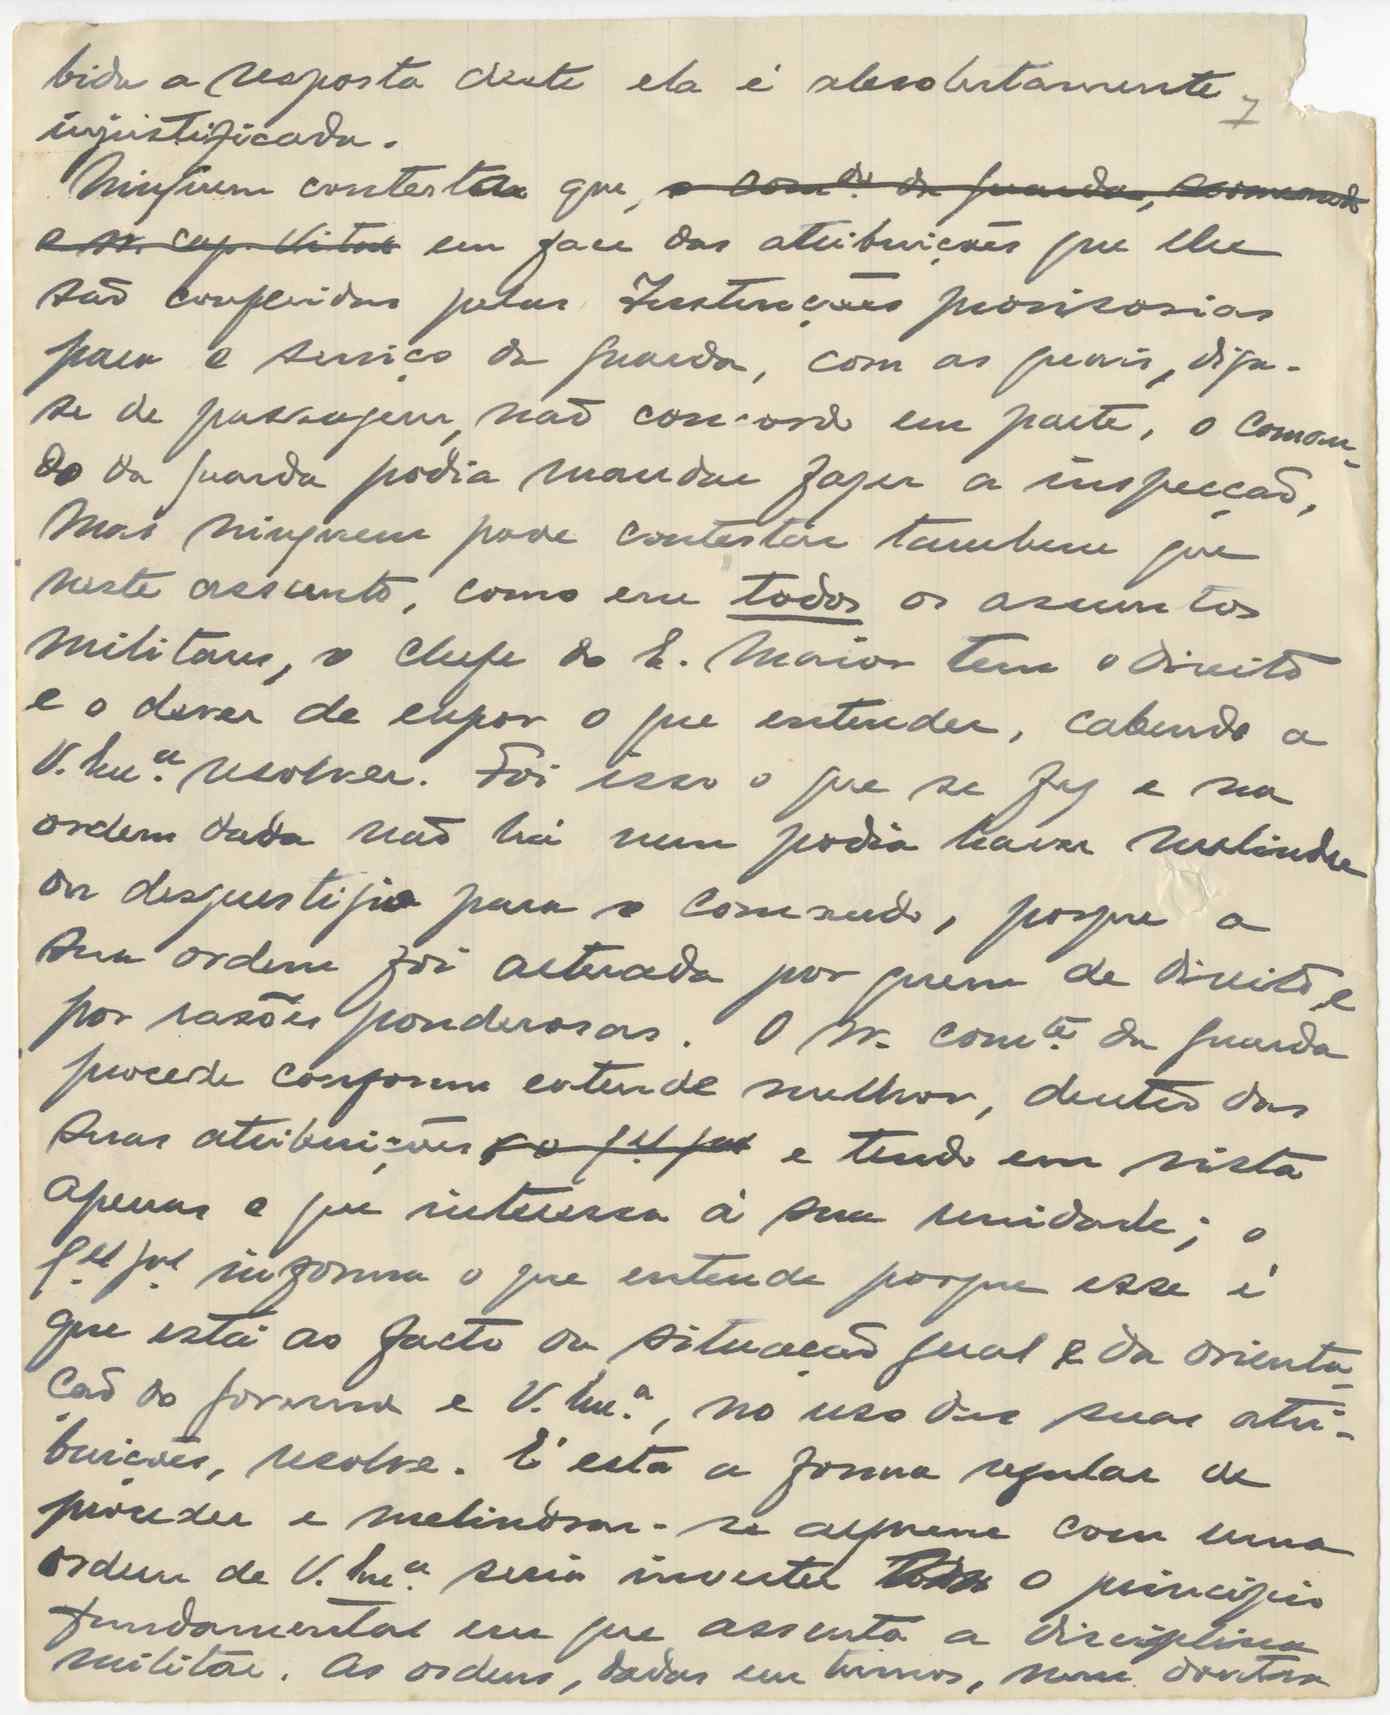 bida a resposta deste ela é absolutamente
7
injustificada.
Ninguem contesta que, o com.do da Guarda, 
e sr. cap. em face das atribuições que lhe
são conferidas pelas Instruções provisorias
para o serviço da Guarda, com as quais, diga-
se de passagem, não concordo em parte, o coman-
do da Guarda podia mandar fazer a inspecção,
Mas ninguem pode contestar tambem que
neste assunto, como em todos os assuntos
militares, o chefe do E. Maior tem o direito
e o dever de expor o que entender, cabendo a
V. Exa. resolver. Foi isso o que se fez e na
ordem dada não há nem podia haver melindre
ou desprestigio para o comando, porque a
sua ordem foi alterada por quem de direito e
por razões ponderosas. O sr. comte. da Guarda
procede conforme entende melhor, dentro das
suas atribuições e o e tendo em vista
apenas o que interessa á sua unidade; o
informa o que entende porque esse é
que está ao facto da situação geral e da orienta-
ção do governo e V. Exa., no uso das suas atri-
buições, resolve. É esta a forma regular de
proceder e melindrar-se alguem com uma
ordem de V. Exa. seria inverter o principio
fundamental em que assenta a disciplina
militar. As ordens, dadas em termos, nem doutra